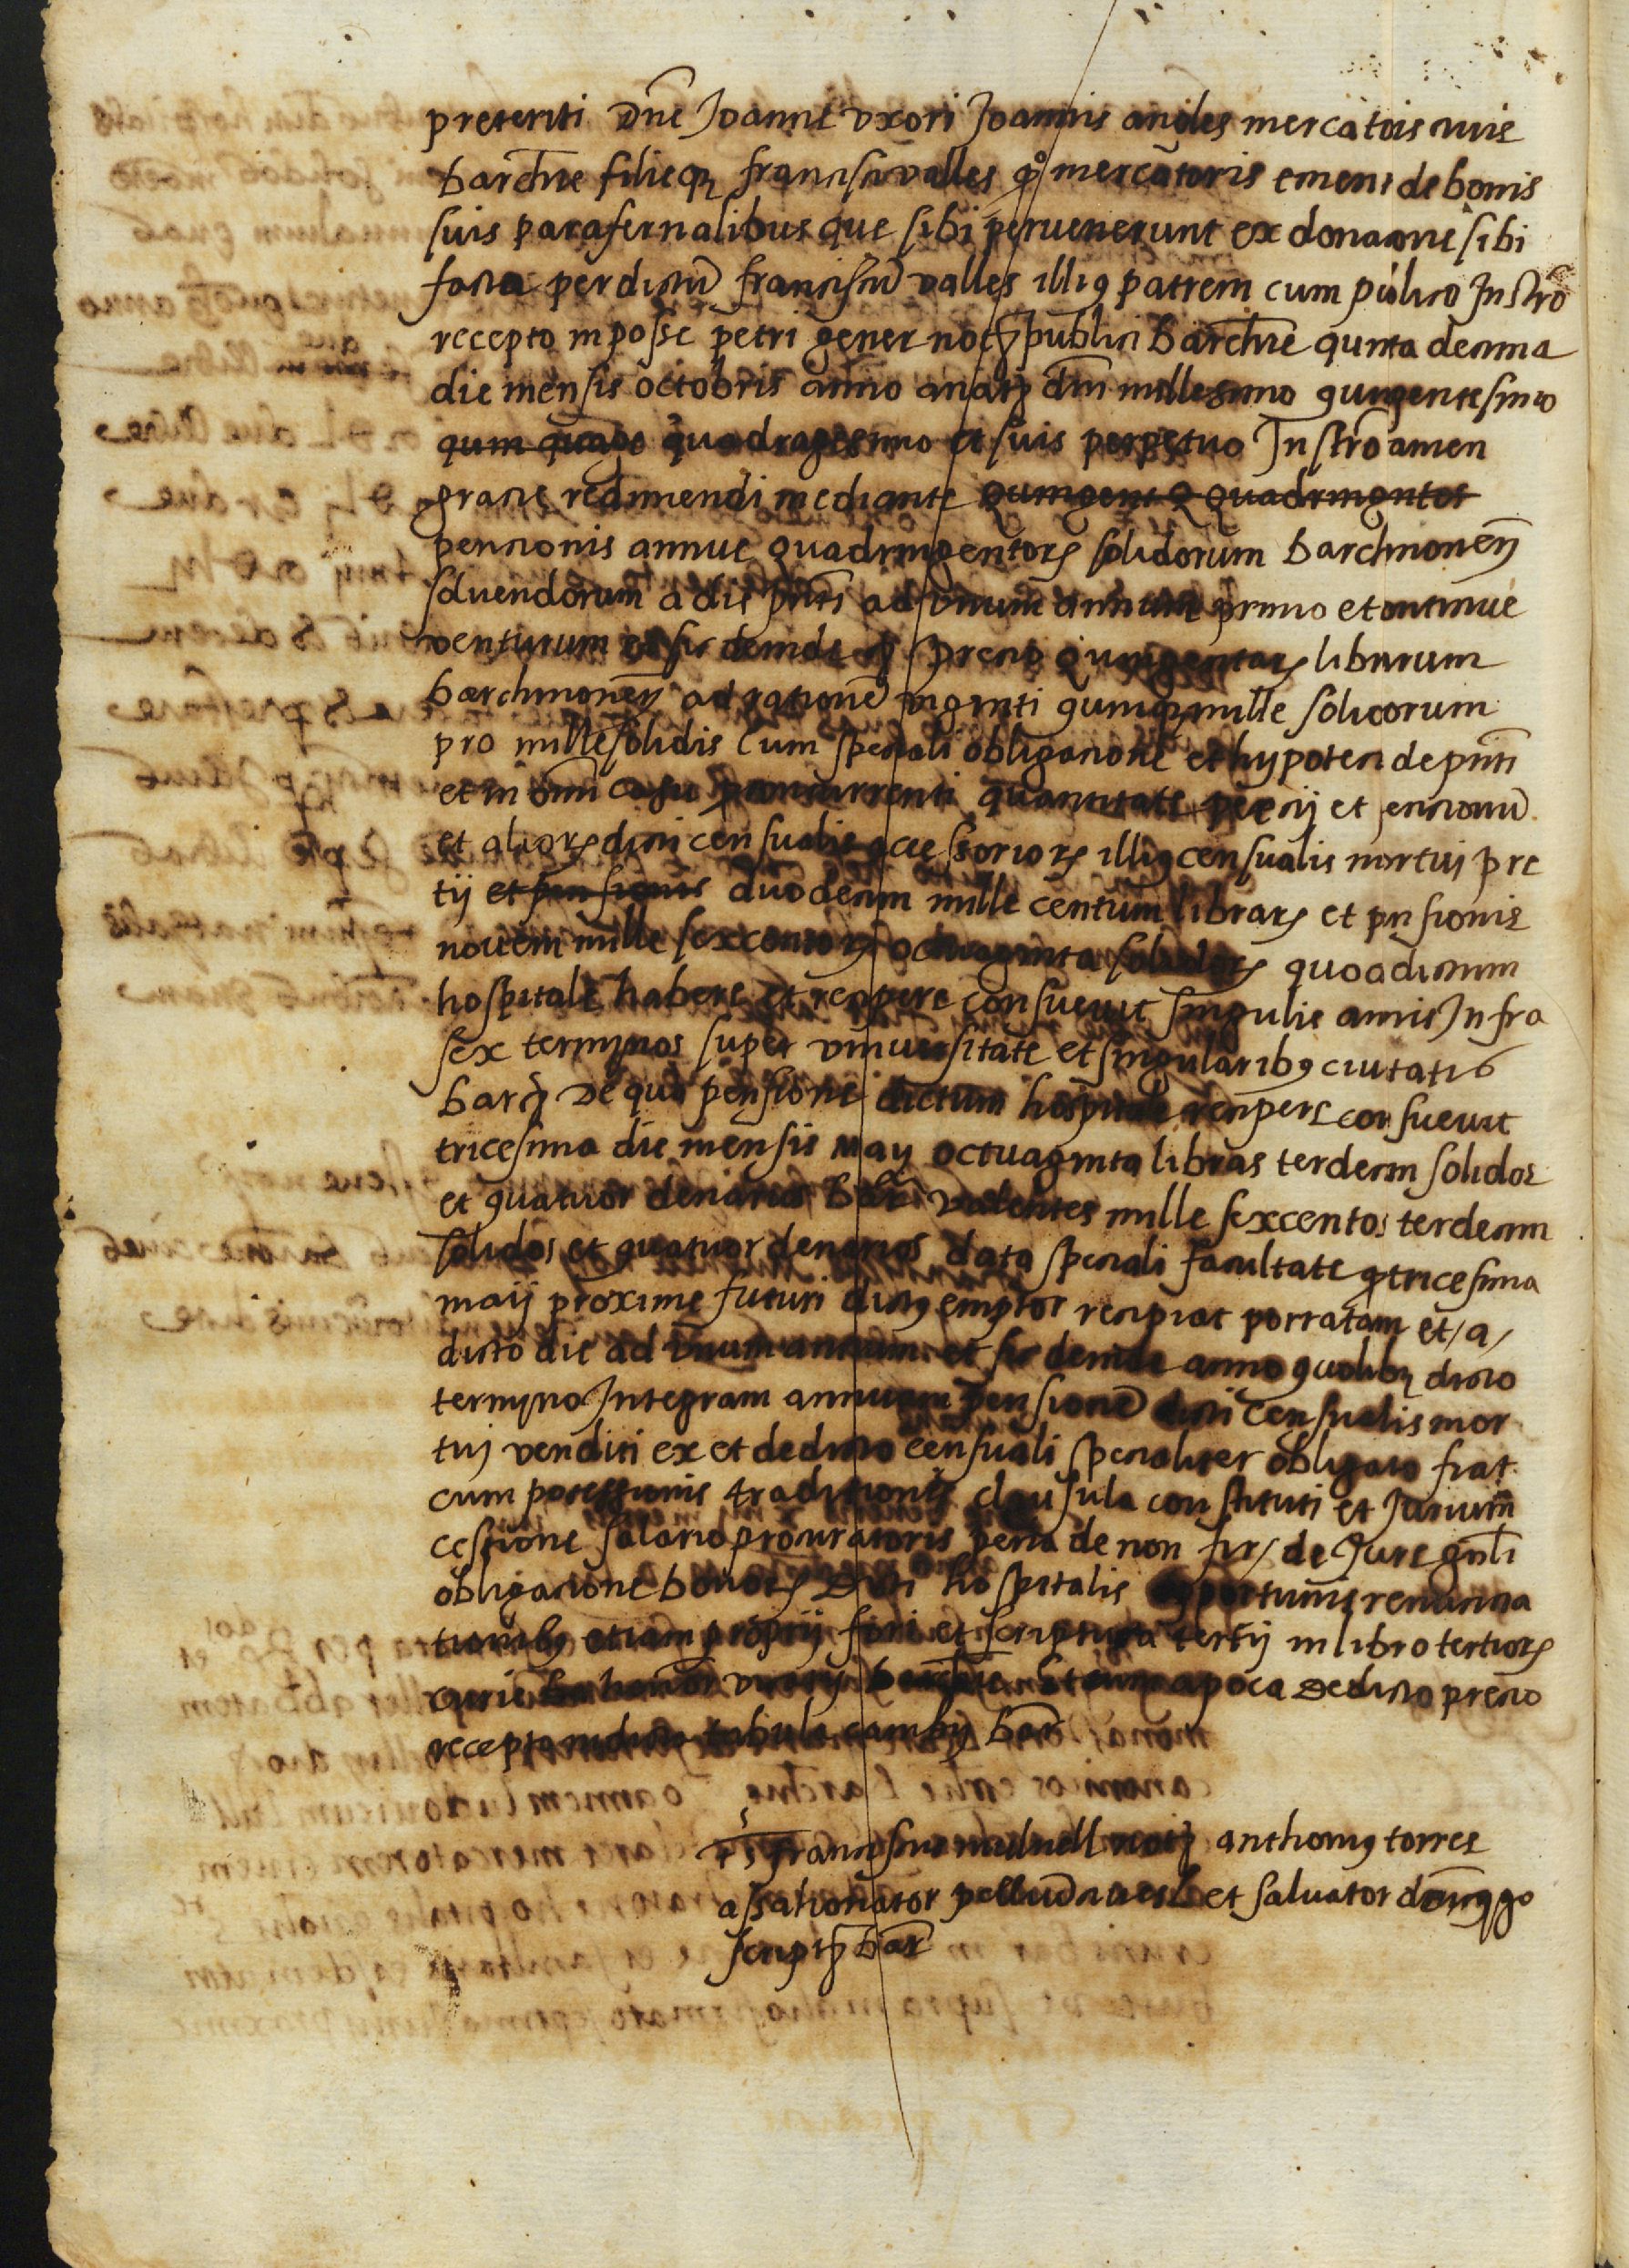 preteriti Dne Joanne uxori Joannis angles mercatoris civis
barchne filieqz francisci valles qo mercatoris ementi de bonis
suis parafernalibus que sibi pervenerunt ex donacione sibi
facta per dictu franciscu valles illius patrem cum publico Instro
recepto in posse petri gener notz publici barchne quinta decima
die mensis octobris anno a natz dni millesimo quingentesimo
quin quage quadragesimo et suis perpetuo Instro amen
gracie redimendi mediante quingent Q quadringentos
pencionis annue quadringentorz solidorum barchinonenz
solvendorum a die pnti ad unum annum primo et continue
venturum et sic deinde precio quingentarz librarum
barchinonenz ad rationem viginti quinqz mille solidorum
pro mille solidis Cum speciali obligacione et hypoteca de pnti
et in omni casu concurrenti quantitate precij et pencionu
et aliorz dicti censualis accessoriorz illius censualis mortui pre
tij et pensionis duodecim mille centum librarz et pensionis
novem mille sexcentorz octuaginta solidorz quod dictum
hospitale habere et recipere consuevit singulis annis Infra
sex terminos super universitate et singularibus civitatis
barc De qua pensione dictum hospitale recipere consuevit
tricesima die mensis may octuaginta libras terdecim solidos
et quatuor denarios Bar valentes mille sexcentos terdecim
solidos et quatuor denarios data speciali facultate q tricesima
maij proxime futuri dictus emptor recipiat porratam et /a/
dicto die ad unum annum et sic deinde anno quolibz dicto
termino Integram annuam pensione dicti censualis mor
tui venditi ex et de dicto censuali specialiter obligato fiat
cum possessionis traditionis clausula constituti et Jurium
cessione salario procuratoris pena de non fir/ de Jure gnli
obligacione bonorz Dicti hospitalis opportunis renuncia
tionibus etiam proprij fori et scriptura tertij in libro tertiorz
curie vicarij barchne Et cum apoca De dicto precio
recepto in dicta tabula cambij bar
ts franciscus mulnell notz anthonius torres
assahonator et salvator domingo
scriptz bar